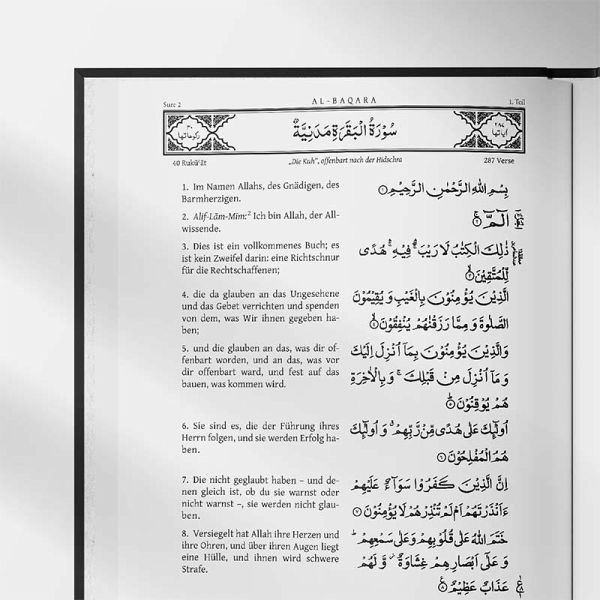 Sure 2 AL-BAQARA 1. Teil
سُوْرَةُ الْبَقَرَةِ مَدَنِيَّةٌ
40 Rukū‘āt „Die Kuh“, offenbart nach der Hidschra 287 Verse
1. Im Namen Allahs, des Gnädigen, des
Barmherzigen.
2. Alif-Lām-Mīm:² Ich bin Allah, der All-
wissende.
3. Dies ist ein vollkommenes Buch; es
ist kein Zweifel darin: eine Richtschnur
für die Rechtschaffenen;
4. die da glauben an das Ungesehene
und das Gebet verrichten und spenden
von dem, was Wir ihnen gegeben ha-
ben;
5. und die glauben an das, was dir of-
fenbart worden, und an das, was vor
dir offenbart ward, und fest auf das
bauen, was kommen wird.
6. Sie sind es, die der Führung ihres
Herrn folgen, und sie werden Erfolg ha-
ben.
7. Die nicht geglaubt haben – und de-
nen gleich ist, ob du sie warnst oder
nicht warnst –, sie werden nicht glau-
ben.
8. Versiegelt hat Allah ihre Herzen und
ihre Ohren, und über ihren Augen liegt
eine Hülle, und ihnen wird schwere
Strafe.
بِسْمِ اللّٰهِ الرَّحْمٰنِ الرَّحِيْمِ
الٓمّٓ
ذٰلِكَ الْكِتٰبُ لَا رَيْبَ ۛ فِيْهِ ۛ هُدًى
لِّلْمُتَّقِيْنَ
الَّذِيْنَ يُؤْمِنُوْنَ بِالْغَيْبِ وَ يُقِيْمُوْنَ
الصَّلٰوةَ وَ مِمَّا رَزَقْنٰهُمْ يُنْفِقُوْنَ
وَالَّذِيْنَ يُؤْمِنُوْنَ بِمَآ اُنْزِلَ اِلَيْكَ
وَ مَآ اُنْزِلَ مِنْ قَبْلِكَ ۚ وَ بِالْاٰخِرَةِ
هُمْ يُوْقِنُوْنَ
اُولٰٓئِكَ عَلٰى هُدًى مِّنْ رَّبِّهِمْ ۙ وَ اُولٰٓئِكَ
هُمُ الْمُفْلِحُوْنَ
اِنَّ الَّذِيْنَ كَفَرُوْا سَوَآءٌ عَلَيْهِمْ
ءَاَنْذَرْتَهُمْ اَمْ لَمْ تُنْذِرْهُمْ لَا يُؤْمِنُوْنَ
خَتَمَ اللّٰهُ عَلٰى قُلُوْبِهِمْ وَ عَلٰى سَمْعِهِمْ ؕ
وَ عَلٰٓى اَبْصَارِهِمْ غِشَاوَةٌ ۫ وَّ لَهُمْ
عَذَابٌ عَظِيْمٌ